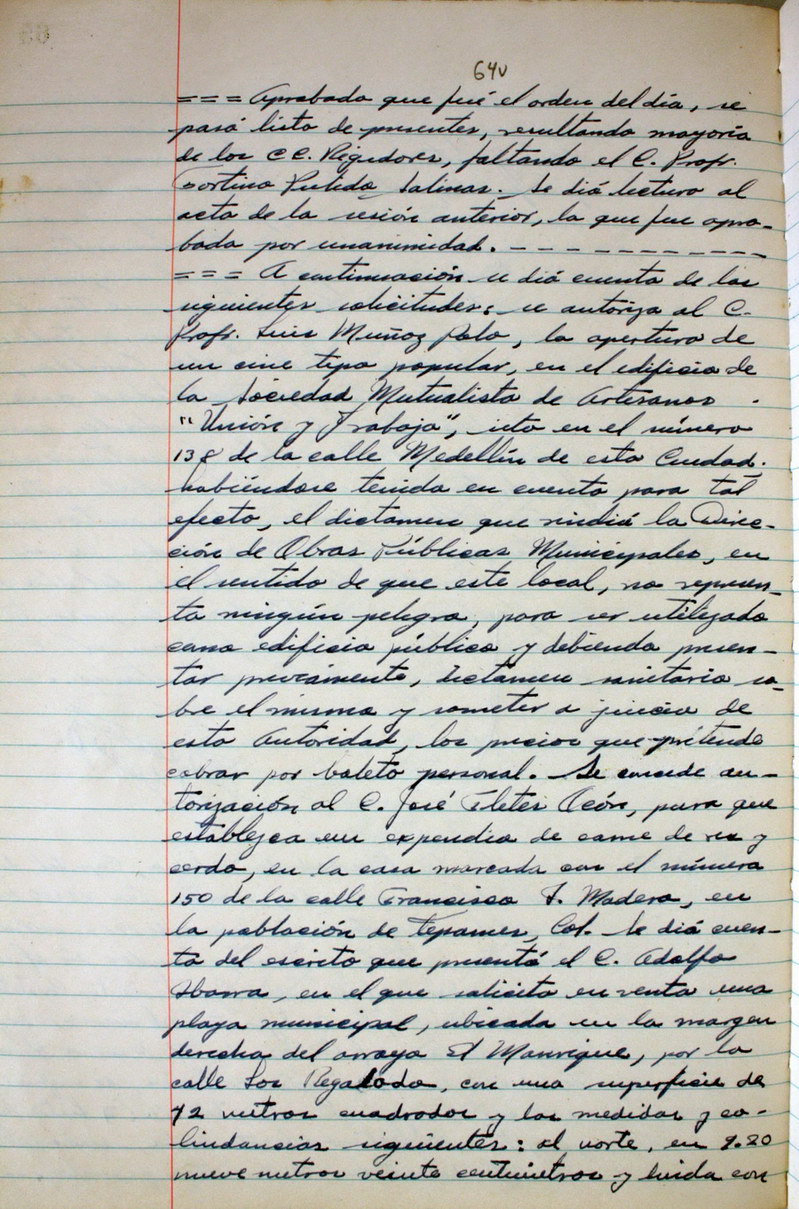 64v
=== Aprobada que fué el orden del día, se
pasó lista de presentes, resultando mayoría
de los CC. Regidores, faltando el C. Profr.
Fortino Pulido Salinas. Se dió lectura al
acta de la sesión anterior, la que fue apro-
bada por unanimidad. - - - - - - - - - - -
=== A continuación se dió cuenta de las
siguientes solicitudes: se autoriza al C.
Profr. Luis Muñoz Polo, la apertura de
un cine tipo popular, en el edificio de
la Sociedad Mutualista de Artesanos
"Unión y Trabajo", sito en el número
138 de la calle Medellín de esta Ciudad.
habiéndose tenido en cuenta para tal
efecto, el dictamen que rindió la Direc-
ción de Obras Públicas Municipales, en
el sentido de que este local, no represen-
ta ningún peligro, para ser utilizado
como edificio público y debiendo presen-
tar previamente, dictamen sanitario so-
bre el mismo y someter a juicio de
esta Autoridad, los precios que pretende
cobrar por boleto personal. Se concede au-
torización al C. José Fletes Ocón, para que
establezca un expendio de carne de res y
cerdo, en la casa marcada con el número
150 de la calle Francisco I. Madero, en
la población de Tepames, Col. Se dió cuen-
ta del escrito que presentó el C. Adolfo
Ibarra, en el que solicita en venta una
playa municipal, ubicada en la margen
derecha del arroyo El Manrique, por la
calle Los Regalado, con una superficie de
72 metros cuadrados y las medidas y co-
lindancias siguientes: al norte, en 9.20
nueve metros veinte centímetros y linda con